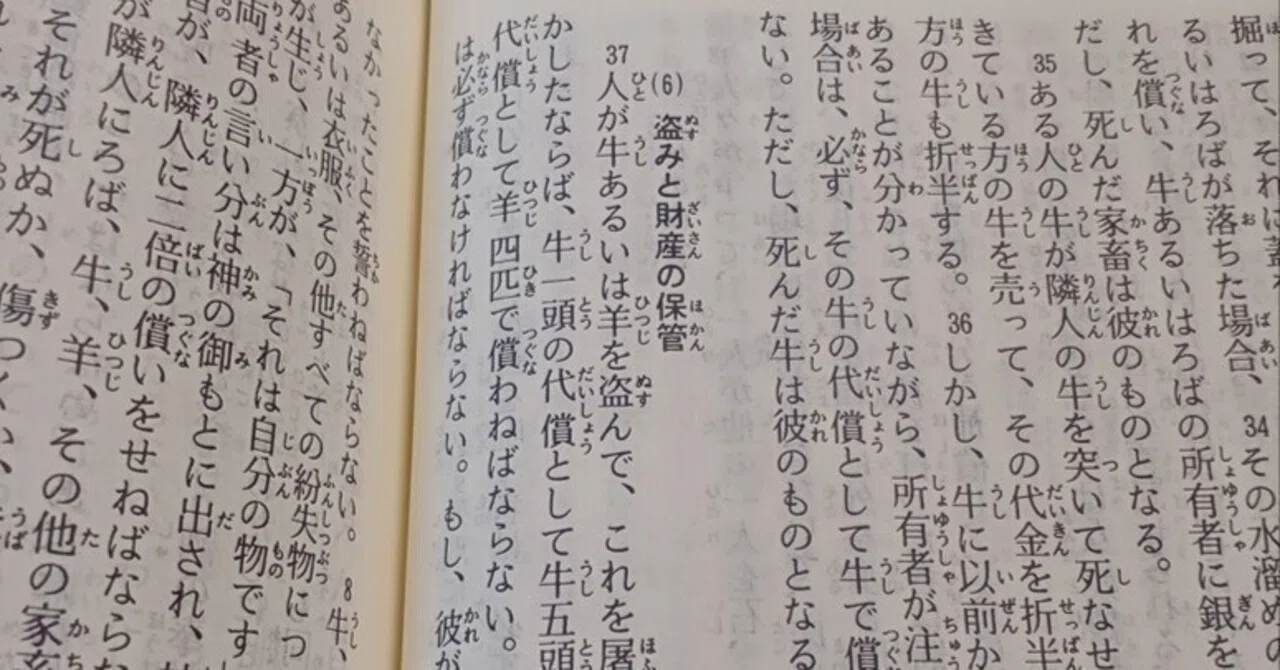 掘って、それに蓋
るいはろばが落ちた場合、34その水溜めの
れを償い、牛あるいはろばの所有者に銀を
だし、死んだ家畜は彼のものとなる。
35ある人の牛が隣人の牛を突いて死なせ
きている方の牛を売って、その代金を折半
方の牛も折半する。36しかし、牛に以前か
あることが分かっていながら、所有者が注
場合は、必ず、その牛の代償として牛で償
ない。ただし、死んだ牛は彼のものとなる
(6) 盗みと財産の保管
37人が牛あるいは羊を盗んで、これを屠
かしたならば、牛一頭の代償として牛五頭
代償として羊四匹で償わねばならない。
は必ず償わなければならない。もし、彼が
なかったことを誓わねばならない。8牛、
あるいは衣服、その他すべての紛失物につ
が生じ、一方が、「それは自分の物です
両者の言い分は神の御もとに出され、
者が、隣人に二倍の償いをせねばならな
が隣人にろば、牛、羊、その他の家畜
それが死ぬか、傷つくか、